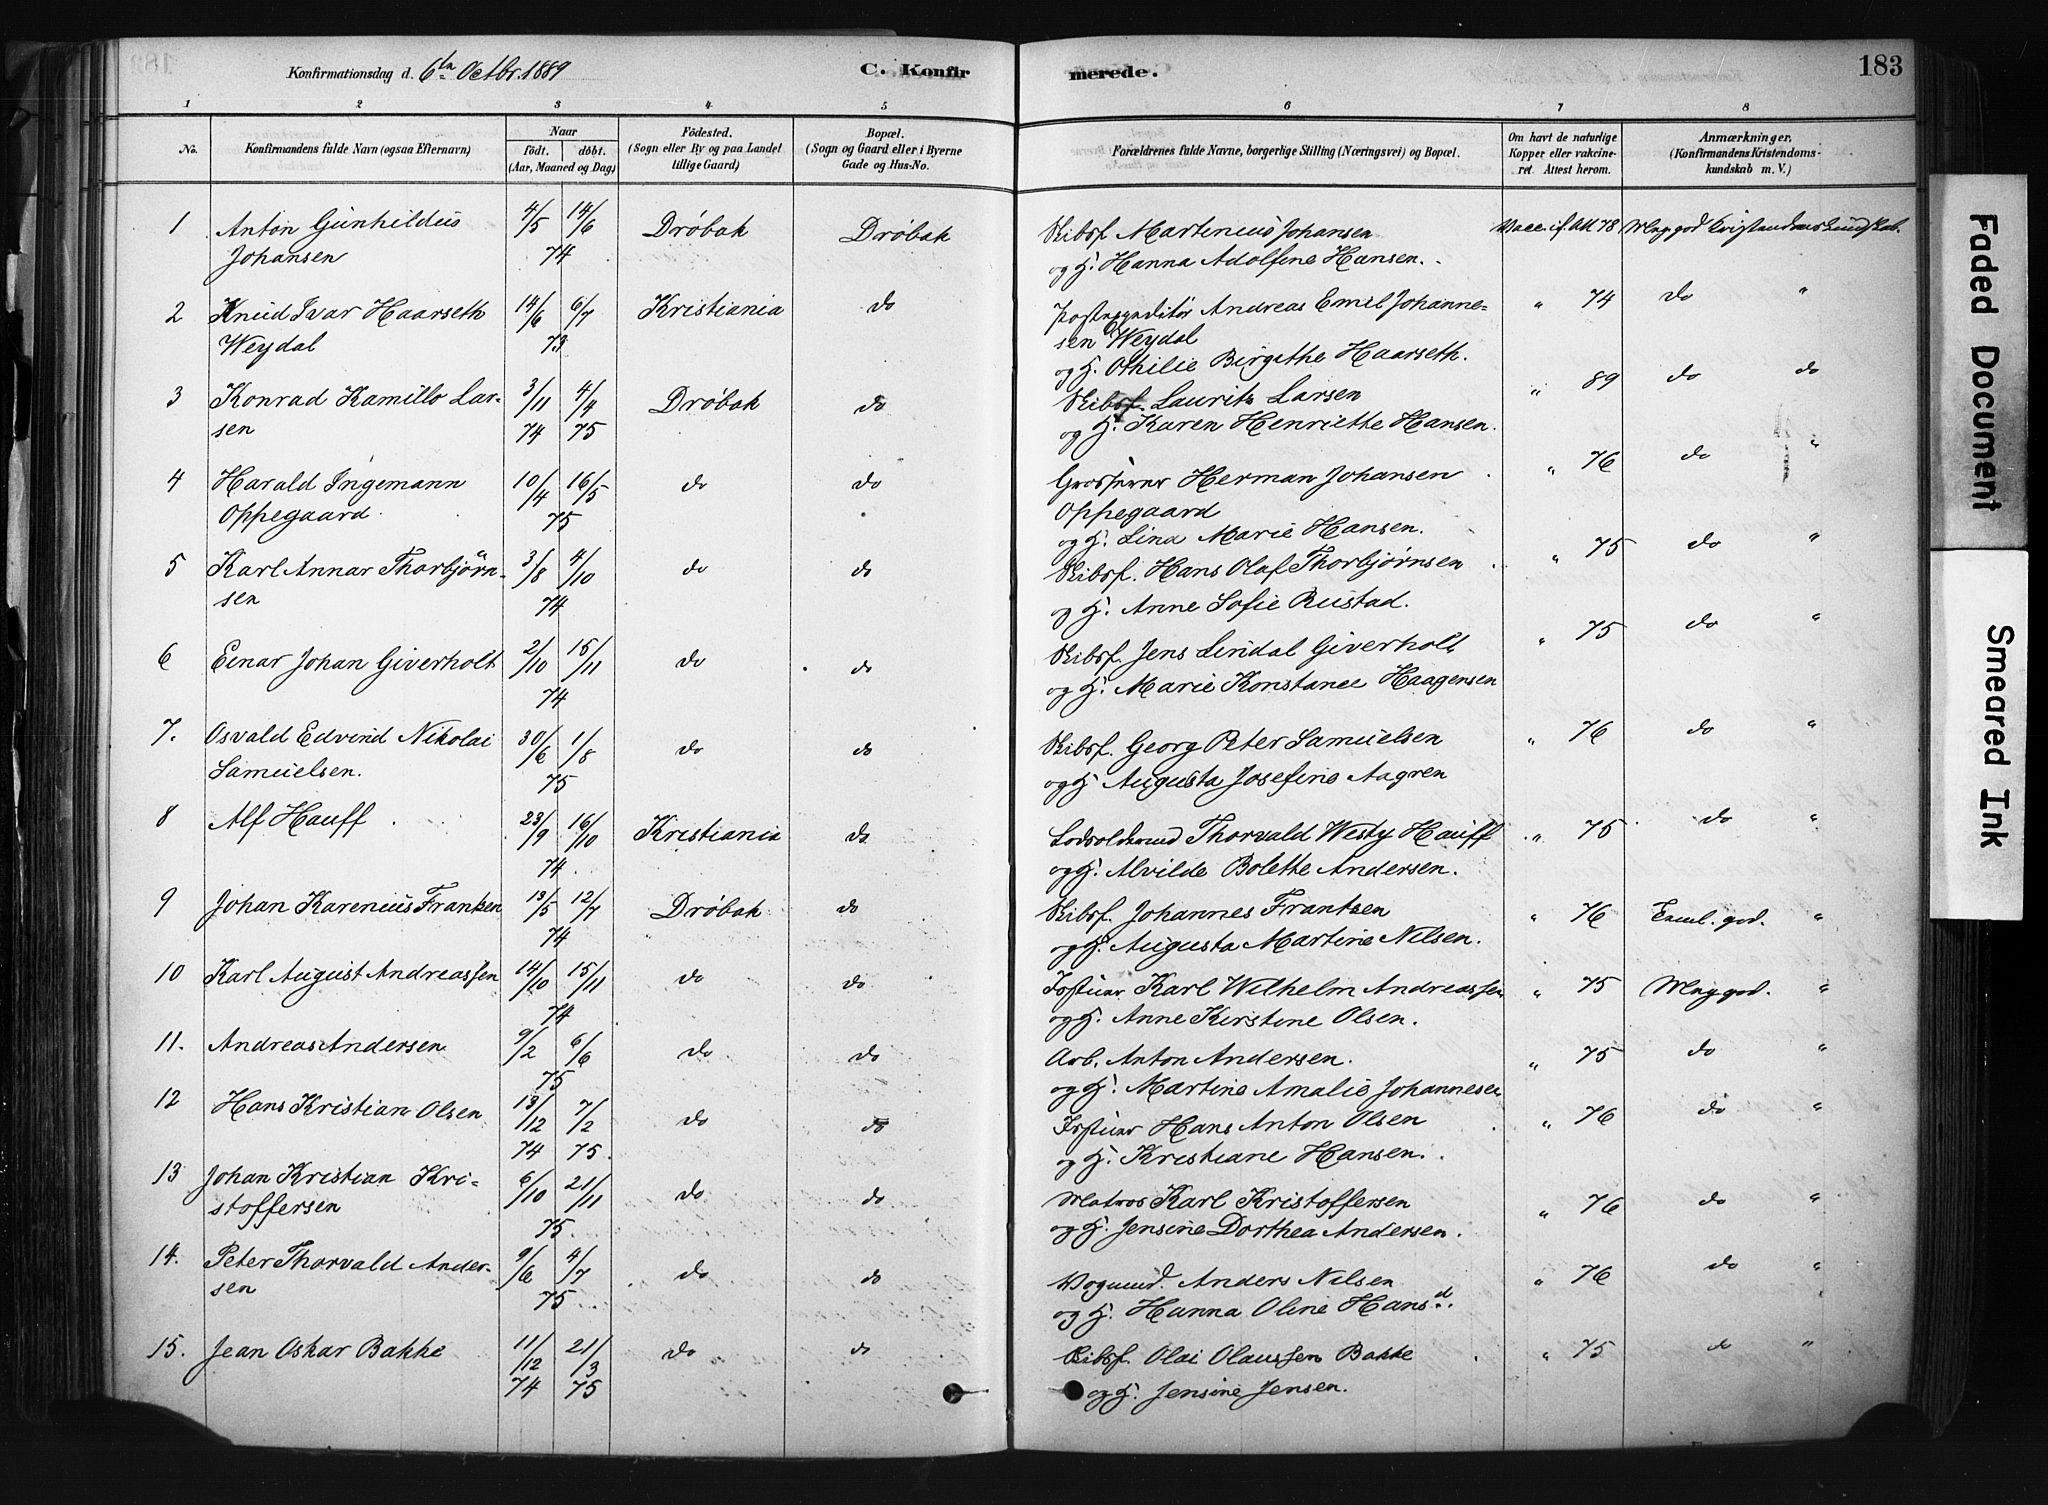 Konfirmationsdag d. 6te Octbr. 1889 C. Konfirmerede. 183
1 2 3 4 5 6 7 8
No. Konfirmandens fulde Navn (ogsaa Efternavn) Naar Født. døbt. (Aar, Maaned og Dag) Födested. (Sogn eller By og paa Landet tillige Gaard) Bopæl. (Sogn og Gaard eller i Byerne Gade og Hus-No. Forældrenes fulde Navne, borgerlige Stilling (Næringsvei) og Bopæl. Om havt de naturlige Kopper eller vakcineret. Attest herom. Anmærkninger. (Konfirmandens Kristendomskundskab m. V.)
1 Anton Gunhildus Johansen 4/5 14/6 74 Drøbak Drøbak Skibsf. Martinius Johansen
og H. Hanna Adolfine Hansen. Vacc. if. Att 78 Meg. god Kristendomskundskab.
2 Knud Ivar Haarseth Weydal 14/6 6/7 73 Kristiania do Postexpeditør Andreas Emil Johannesen Weydal
og H. Othilie Birgithe Haarseth. " 74 do "
3 Konrad Kamillo Larsen 3/11 74 4/4 75 Drøbak do Skibsf. Lauritz Larsen
og H. Karen Henriette Hansen. " 89 do do
4 Harald Ingemann Oppegaard. 10/4 16/5 75 do do Herman Johansen Oppegaard
og H. Lina Marie Hansen. " 76 do "
5 Karl Annar Thorbjørnsen 3/8 4/10 74 do do Skibsf. Hans Olaf Thorbjørnsen
og H. Anne Sofie Rustad. " 75 do "
6 Einar Johan Giverholt 2/10 15/11 74 do do Skibsf. Jens Lindal Giverholt
og H. Marie Konstance Haagensen " 75 do "
7. Osvald Edvind Nikolai Samuelsen. 30/6 1/8 75 do do Skibsf. Georg Peter Samuelsen
og H Augusta Josefine Aagren " 76 do "
8 Alf Hauff 23/9 16/10 74. Kristiania do Lodsoldermd Thorvald Westy Hauff
og H. Alvilde Bolette Andersen. " 75 do "
9 Johan Karenius Frantzen 13/5 12/7 74 Drøbak do Skibsf. Johannes Frantsen
og H. Augusta Martine Nilsen. " 76 god. "
10 Karl August Andreassen 14/10 15/11 74 do do Karl Wilhelm Andreassen
og H. Anne Kirstine Olsen. " 75 Meg. god. "
11. Andreas Andersen 9/2 6/6 75 do do Arb. Anton Andersen.
og H. Martine Amalie Johannesen " 75 do "
12 Hans Kristian Olsen 13/12 74 7/2 75. do do Hans Anton Olsen
og H. Kristiane Hansen. " 76 do "
13 Johan Kristian Kristoffersen 6/10 21/11 75. do do Matros Karl Kristoffersen
og H. Jensine Dorthea Andersen. " 76 do "
14. Peter Thorvald Andersen 9/6 4/7 75 do do Vognmd. Anders Nilsen
og H. Hanna Oline Hansd. " 76 do "
15. Jean Oskar Bakke 11/12 74 21/3 75 do do Skibsf. Olai Olaussen Bakke
og H. Jensine Jensen. " 75 do "
Faded Document
Smeared Ink